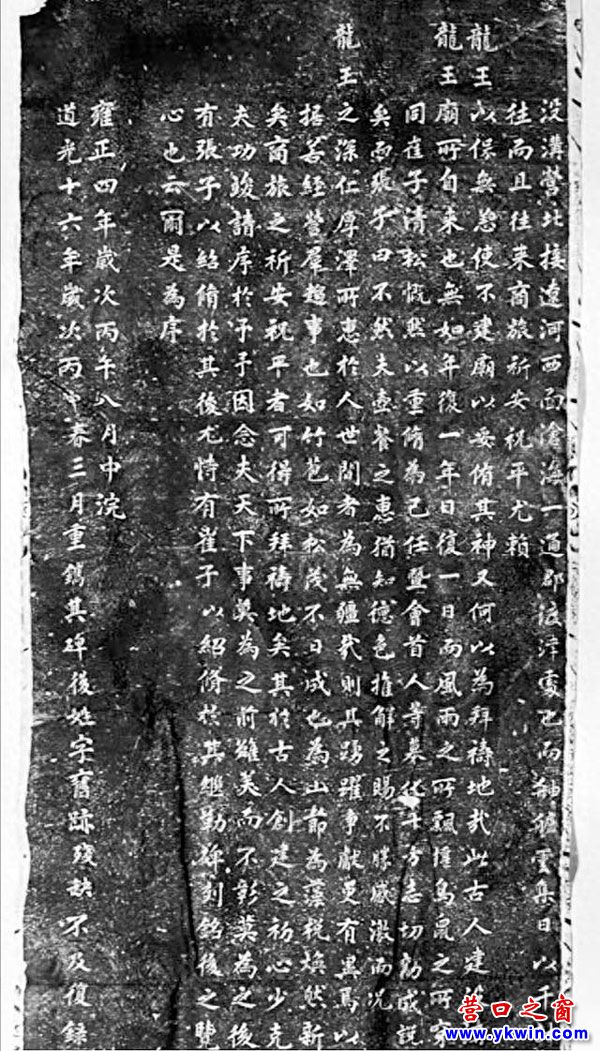 没溝營北接遼河西面滄海一通郡後津處也而舳艫雲集日以千
往而且往来商旅祈安祝平尤賴
龍王以保無恙使不建廟以妥侑其神又何以為拜禱地哉此古人建設
龍王廟所自来也無如年復一年日復一日而風雨之所飄摧鳥鼠之所穴
同崔子清松慨然以重脩為己任暨會首人等募化十方志切勸成説
矣而張子曰不然夫壺餐之惠猶知德色推解之賜不勝感激而况
龍王之深仁厚澤所惠於人世間者為無疆哉則其踴躍争獻更有異焉以
据苦經營羣趋事也如竹苞如松茂不日成也為山節為藻梲焕然新
矣商旅之祈安祝平者可得所拜禱地矣其於古人創建之初心少克
夫功竣請序於予予因念夫天下事莫為之前雖美而不彰莫為之後
有張子以紹脩於其後尤恃有崔子以紹脩於其繼勒碑刻銘後之覽
心也云爾是為序
雍正四年歲次丙午八月中浣
道光十六年歲次丙申春三月重鐫其碑後姓字舊跡殘缺不及復録
营口之窗
www.ykwin.com